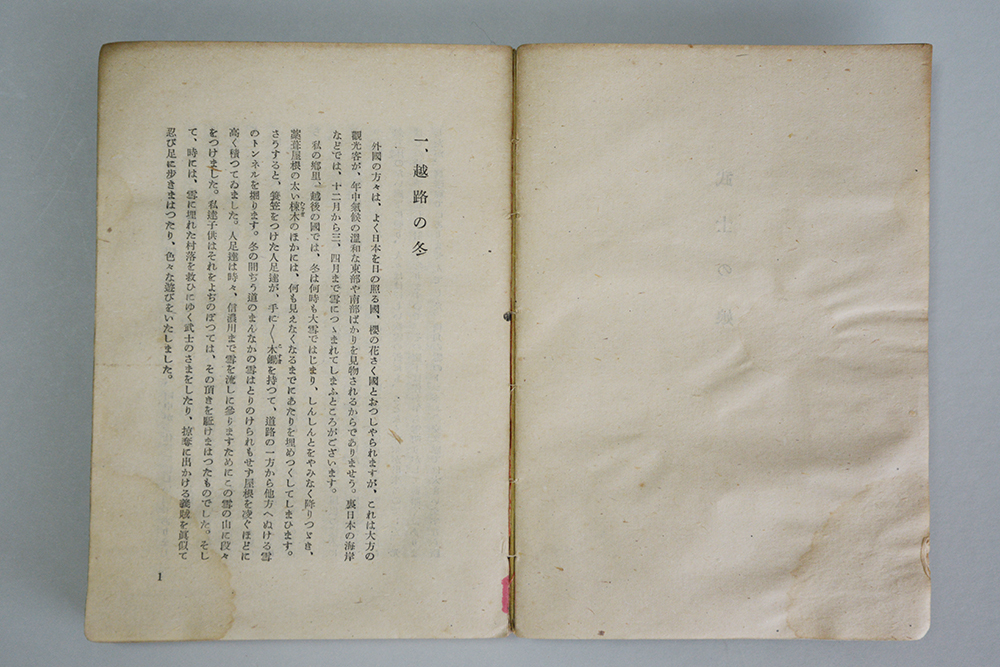 一、越路の冬
外國の方々は、よく日本を日の照る國、櫻の花さく國とおつしやられますが、これは大方の
觀光客が、年中氣候の溫和な東部や南部ばかりを見物されるからでありませう。裏日本の海岸
などでは、十二月から三、四月まで雪につゝまれてしまふところがございます。
私の鄕里、越後の國では、冬は何時も大雪ではじまり、しんしんとをやみなく降りつゞき、
藁葺屋根の太い棟木のほかには、何も見えなくなるまでにあたりを埋めつくしてしまひます。
さうすると、簑笠をつけた人足達が、手に〱木鋤を持つて、道路の一方から他方へぬける雪
のトンネルを掘ります。冬の間ぢう道のまんなかの雪はとりのけられもせず屋根を凌ぐほどに
高く積つてゐました。人足達は時々、信濃川まで雪を流しに參りますためにこの雪の山に段々
をつけました。私達子供はそれをよぢのぼつては、その頂きを駈けまはつたものでした。そし
て、時には、雪に埋れた村落を救ひにゆく武士のさまをしたり、掠奪に出かける義賊を眞似て
忍び足に歩きまはつたり、色々な遊びをいたしました。
1
武士の娘